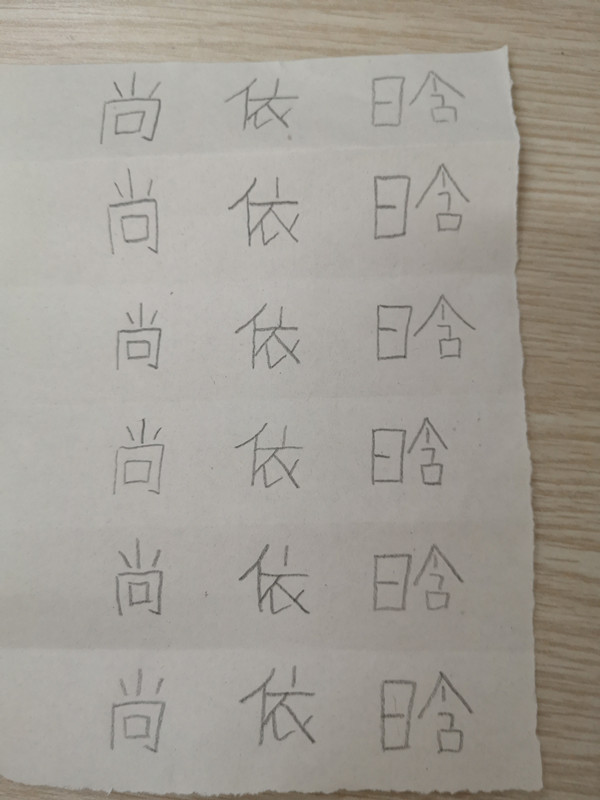 尚 依 晗
尚 依 晗
尚 依 晗
尚 依 晗
尚 依 晗
尚 依 晗